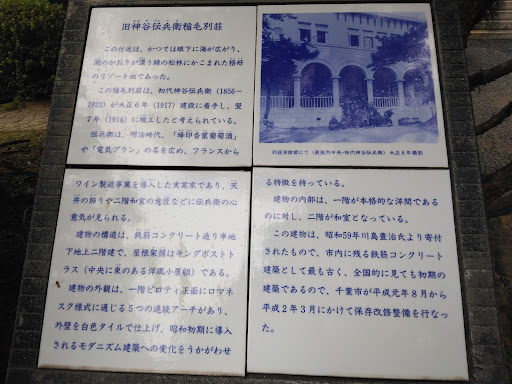 旧神谷伝兵衛稲毛別荘
この付近は、かつては眼下に海が広がり、
潮のかおりが漂う緑の松林にかこまれた格好
のリゾート地であった。
この稲毛別荘は、初代神谷伝兵衛(1856-
1922)が大正6年(1917)建設に着手し、翌
7年(1918)に竣工したと考えられている。
伝兵衛は、明治時代、「蜂印香竄葡萄酒」
や「電気ブラン」の名を広め、フランスから
別荘洋館前にて(最後列中央・初代神谷伝兵衛)大正8年撮影
ワイン製造事業を導入した実業家であり、天
井の飾りや二階和室の意匠などに伝兵衛の心
意気が見られる。
建物の構造は、鉄筋コンクリート造り半地
下地上二階建で、屋根架構はキングポストト
ラス(中央に束のある洋風小屋組)である。
建物の外観は、一階ピロティ正面にロマネ
スク様式に通じる5つの連続アーチがあり、
外壁を白色タイルで仕上げ、昭和初期に導入
されるモダニズム建築への変化をうかがわせ
る特徴を持っている。
建物の内部は、一階が本格的な洋間である
のに対し、二階が和室となっている。
この建物は、昭和59年川島豊治氏より寄付
されたもので、市内に残る鉄筋コンクリート
建築として最も古く、全国的に見ても初期の
建築であるので、千葉市が平成元年8月から
平成2年3月にかけて保存改修整備を行なっ
た。